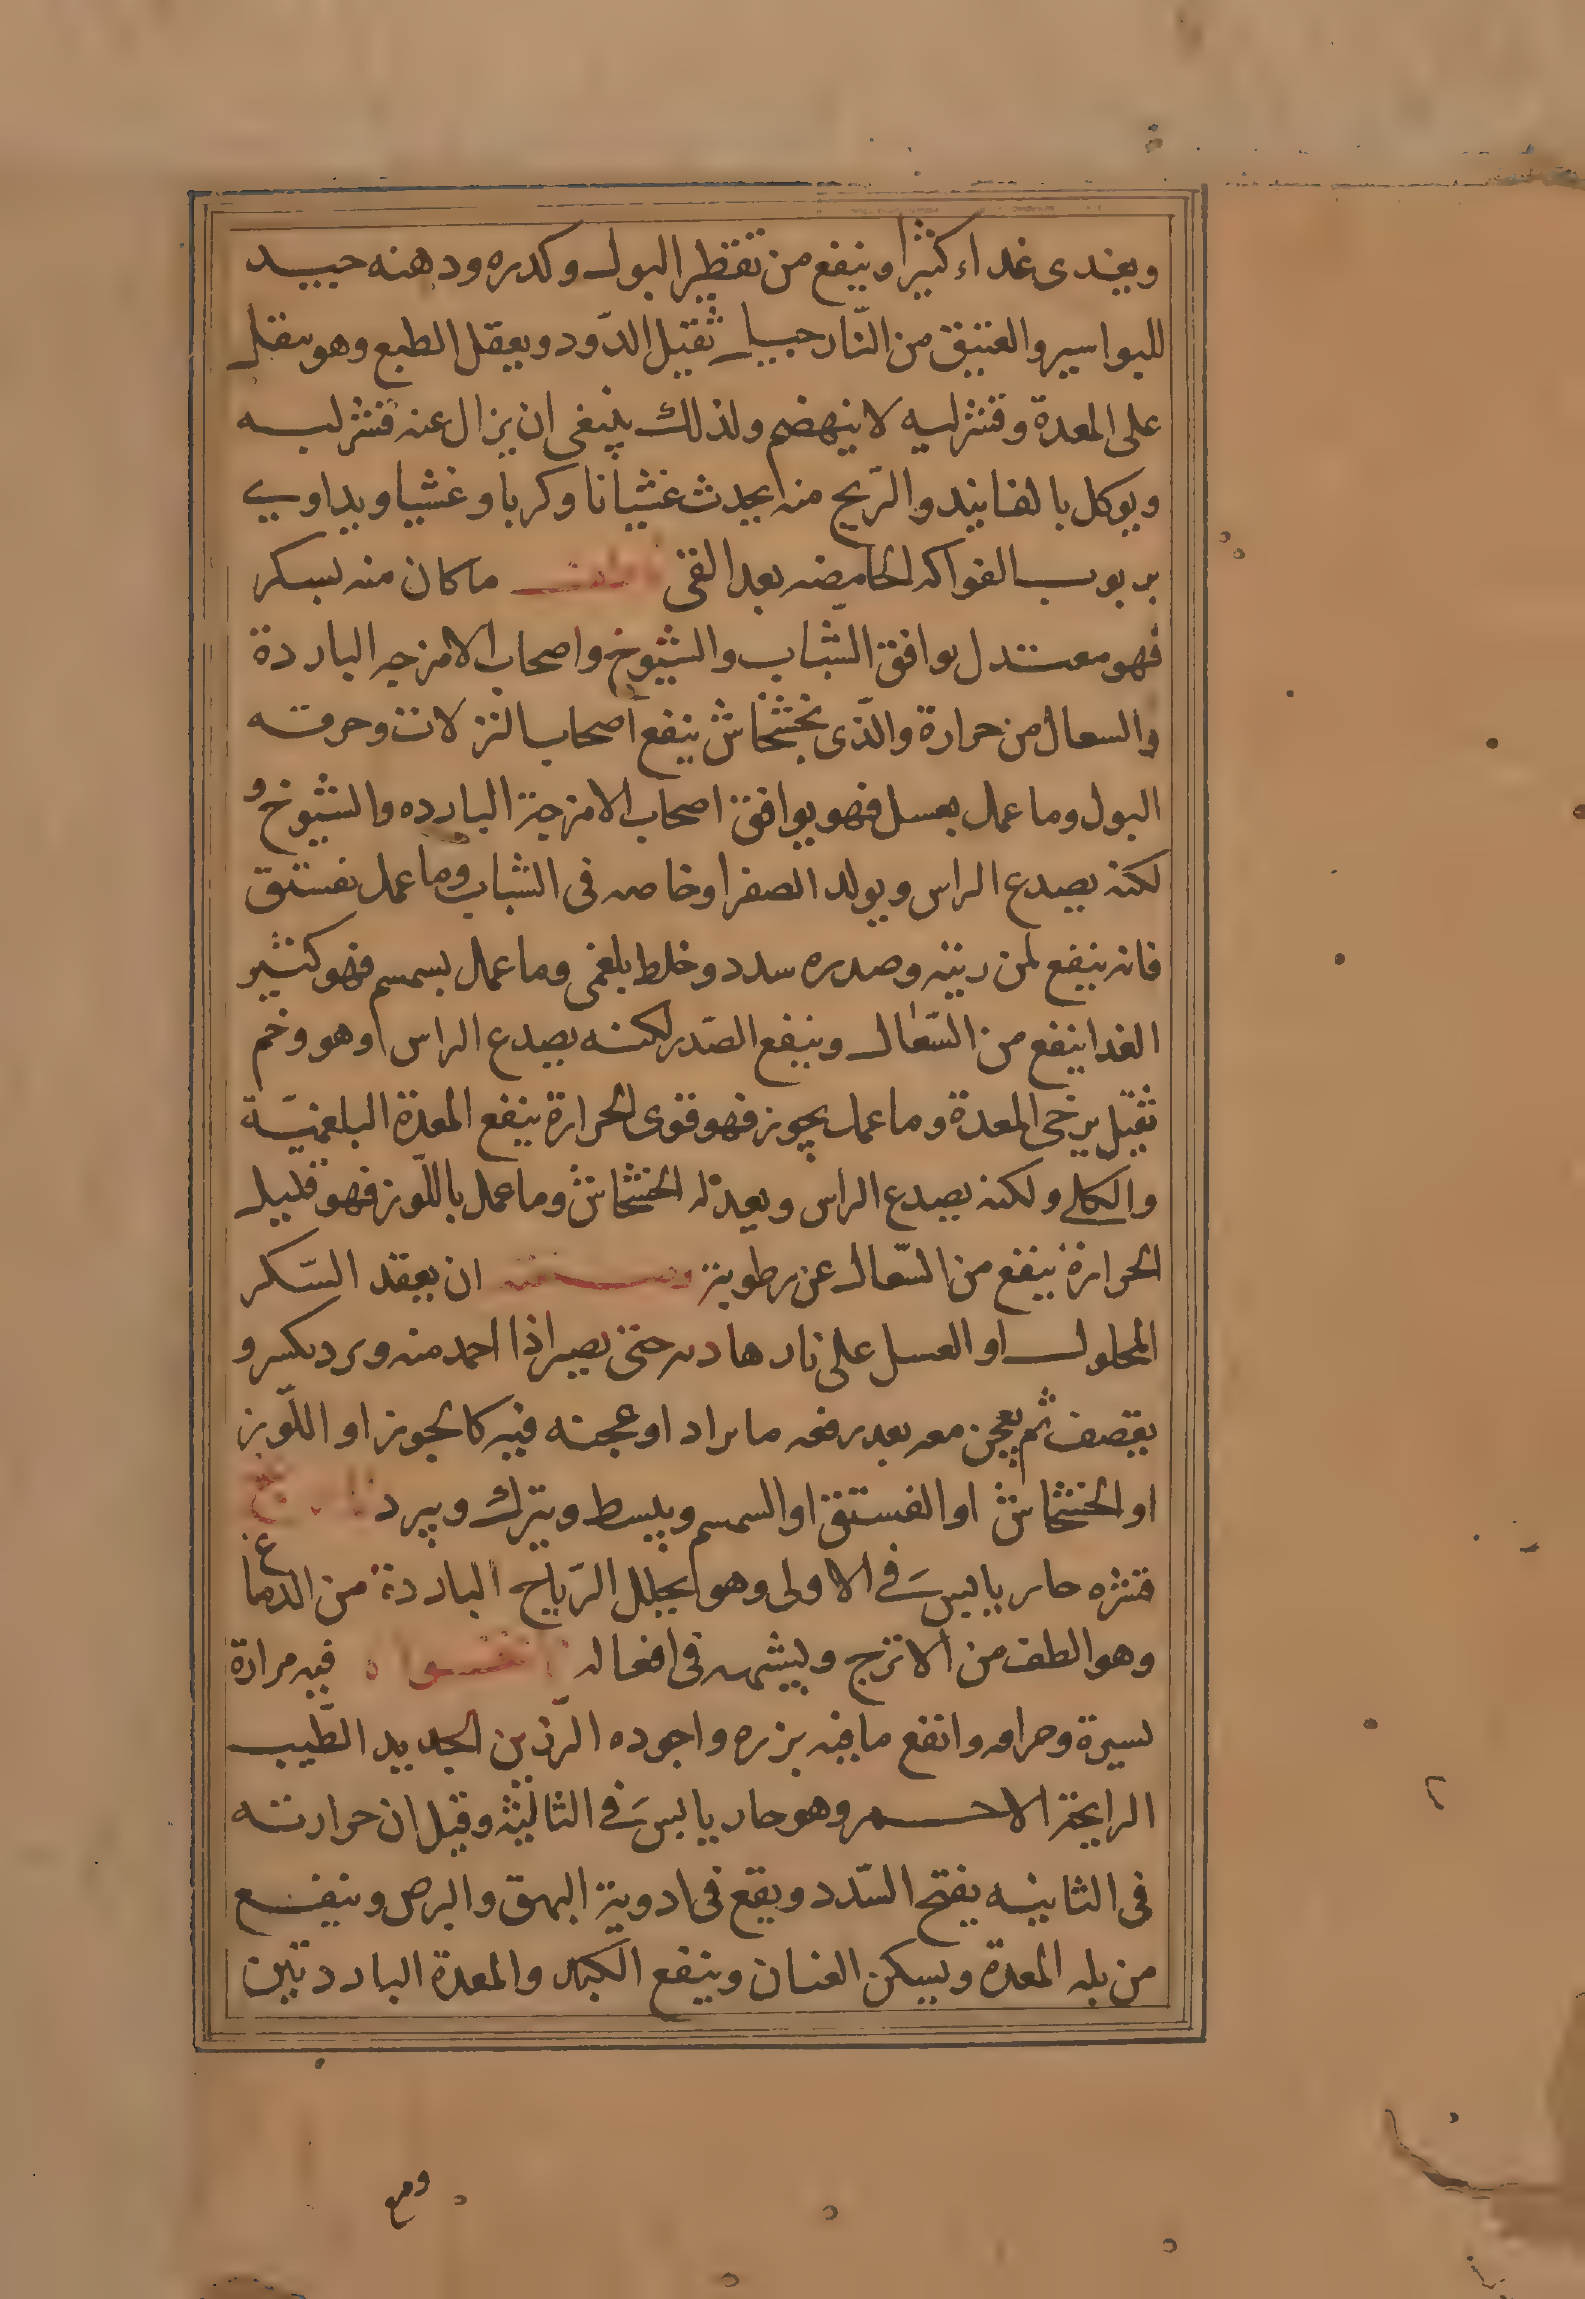 ويغدى غداء كثيرا وينفع من تقطير البول وكدره ودهنه جيد
للبواسير والعتيق من النار حبيل ثقيل الدود ويعقل الطبع وهو ثقيل
على المعدة وقشر لبه لا ينهضم ولذلك ينبغى ان يزال عنه قشر لبه
ويوكل بالفانيد والزنخ منه يحدث غثيانا وكربا وغشيا ويداوي
بربوب الفواكه الحامضه بعد القى ناطف ما كان منه بسكر
فهو معتدل يوافق الشباب والشيوخ واصحاب الامزجه الباردة
والسعال من حرارة والذى بخشخاش ينفع اصحاب النزلات وحرقه
البول وما عمل بعسل فهو يوافق اصحاب الامزجة البارده والشيوخ و
لكنه يصدع الراس ويولد الصفرا وخاصه فى الشباب وما عمل بفستق
فانه ينفع لمن ريته وصدره سدد وخلط بلغمى وما عمل بسمسم فهو كثير
الغدا ينفع من السعال وينفع الصدر لكنه يصدع الراس وهو وخم
ثقيل يرخى المعدة وما عمل بجوز فهو قوى الحرارة ينفع المعدة البلغمية
والكلى ولكنه يصدع الراس وبعده له الخشخاش وما عمل باللوز فهو قليل
الحرارة ينفع من السعال عن رطوبة وصنعته ان يعقد السكر
المحلول او العسل على نار هاديه حتى يصير اذا اخذ منه وبرد يكسر و
يقصف ثم يعجن معه بعد رفعه ما يراد او عجنه فيه كالجوز او اللوز
او الخشخاش او الفستق او السمسم ويبسط ويترك ويبرد نارنج
قشره حار يابس فى الاولى وهو يحلل الرياح الباردة من الدماغ
وهو الطف من الاترج ويشبهه فى افعاله نانخواه فيه مرارة
يسيرة وحرافه وانفع ما فيه بزره واجوده الرزين الجديد الطيب
الرايحة الاحمر وهو حار يابس فى الثالثة وقيل ان حرارته
فى الثانيه يفتح السدد ويقع فى ادوية البهق والبرص وينفع
من بله المعدة ويسكن الغثيان وينفع الكبد والمعدة الباردتين
ومع